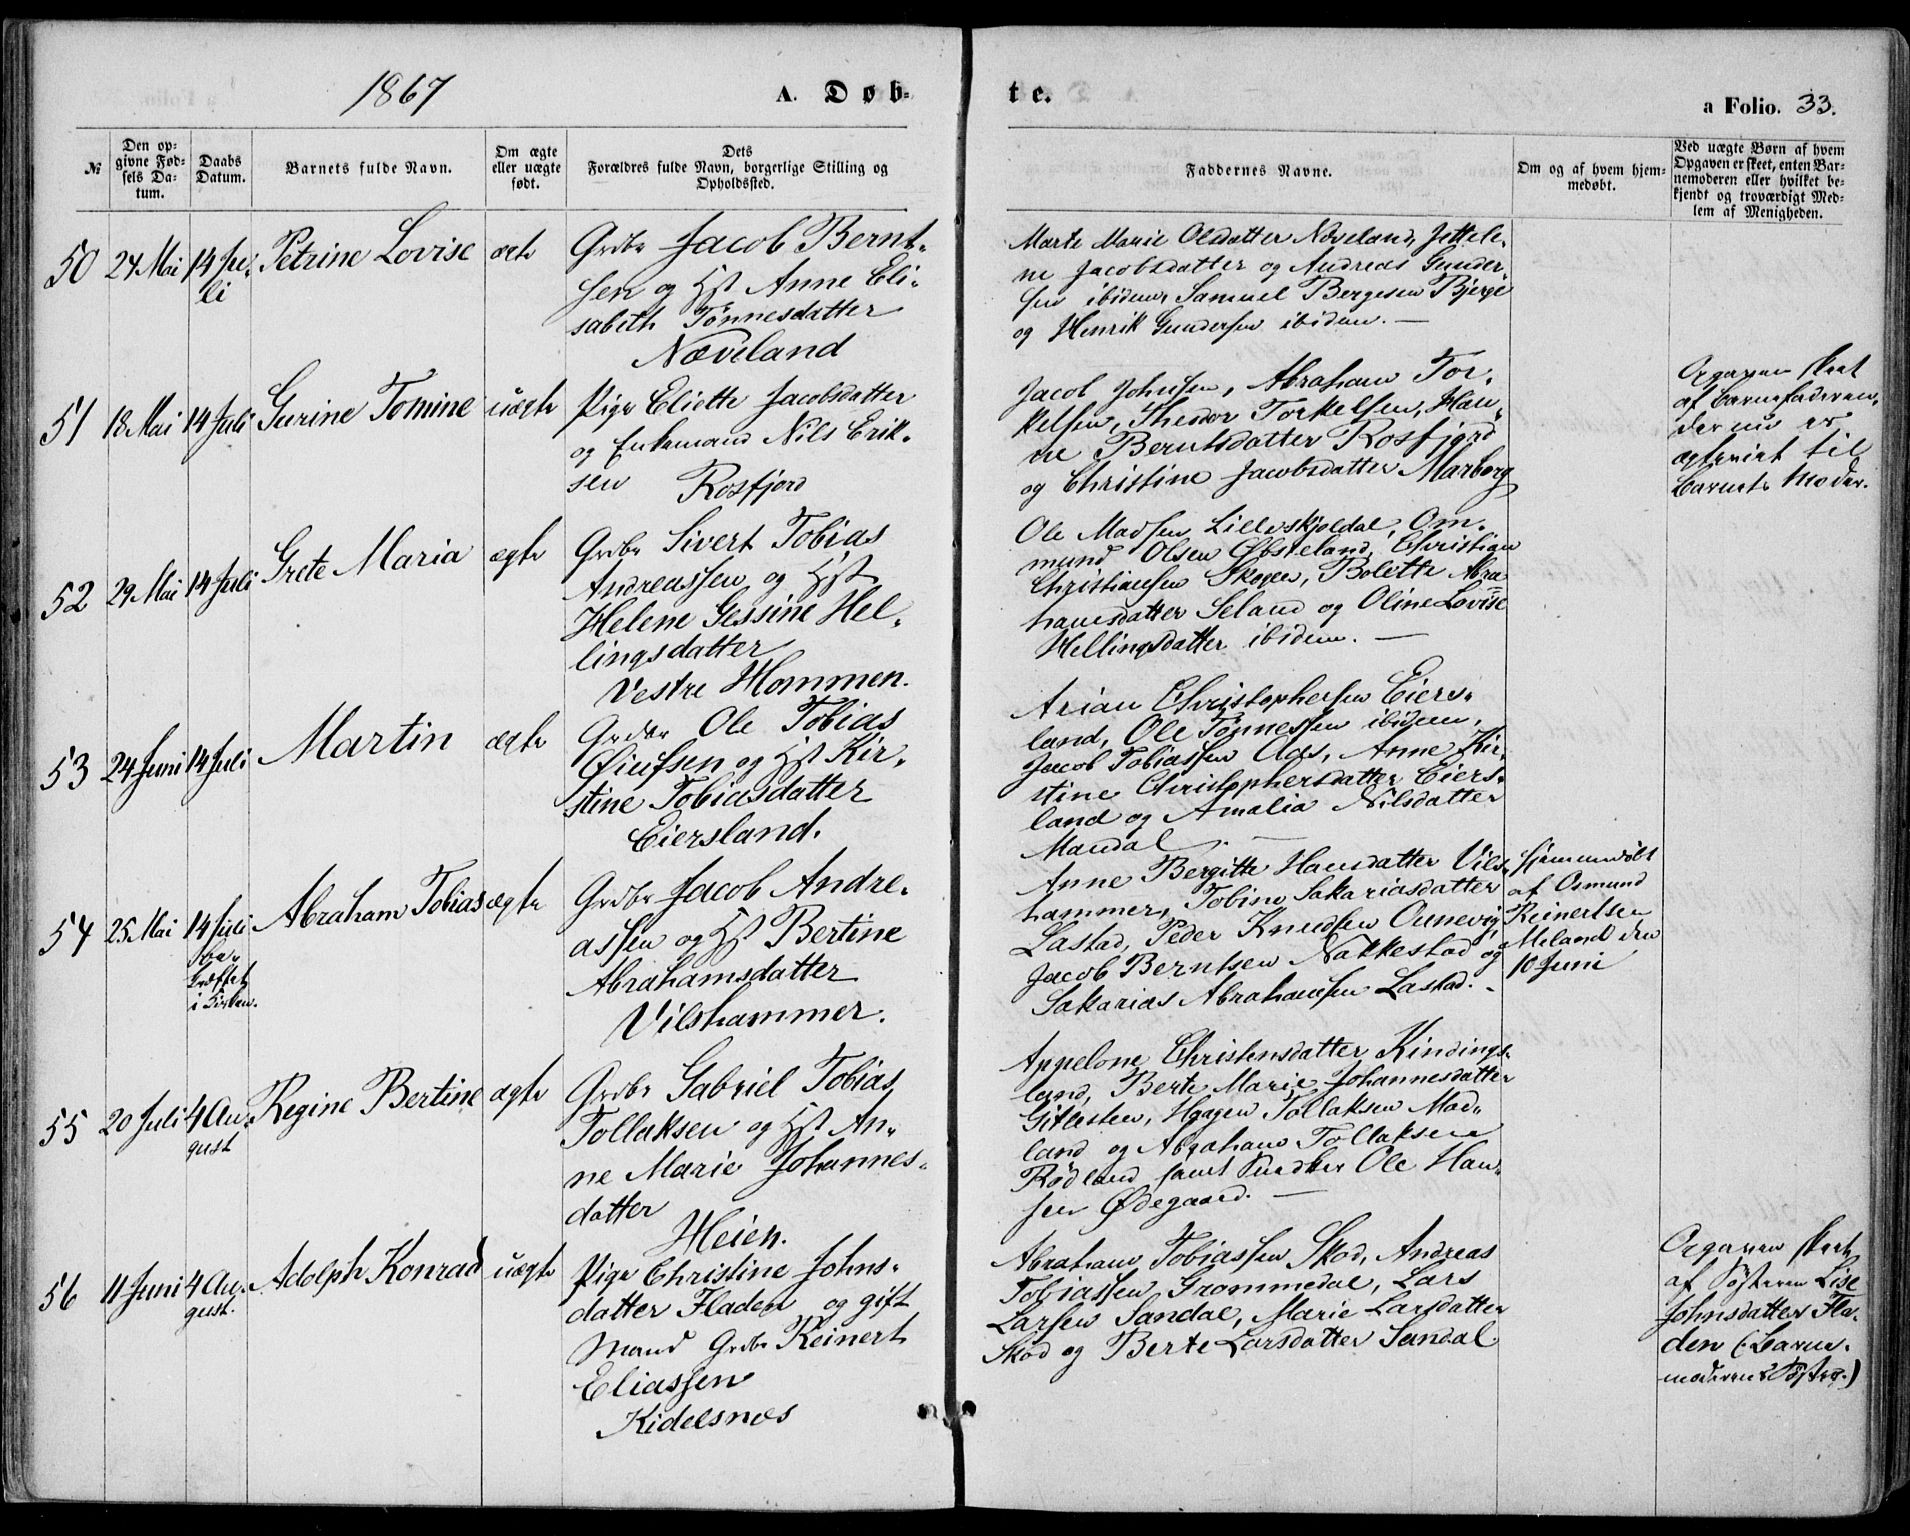 1867
A. Døb-
te.
a Folio. 33.
№
Den op-
givne Fød-
sels Da-
tum.
Daabs
Datum.
Barnets fulde Navn.
Om ægte
eller uægte
født.
Dets
Forældres fulde Navn, borgerlige Stilling og
Opholdssted.
Faddernes Navne.
Om og af hvem hjem-
medøbt.
Ved uægte Børn af hvem
Opgaven er skeet, enten Bar-
nemoderen eller hvilket be-
kjendt og troværdigt Med-
lem af Menigheden.
50
24 Mai
14 Ju-
li
Petrine Lovise
ægte
Grdbr Jacob Bernt-
sen og Hst Anne Eli-
sabeth Tönnesdatter
Næveland
Marte Marie Olsdatter Næveland, Jettele-
ne Jacobsdatter og Andreas Gunder-
sen ibidem, Samuel Bergesen Bjerge
og Henrik Gundersen ibidem. —
51
18 Mai
14 Juli
Gurine Tomine
uægte
Pige Eliette Jacobsdatter
og Enkemand Nils Erik-
sen Rosfjord
Jacob Johnsen, Abraham Tor-
kelsen, Theodor Torkelsen, Han-
ne Berntsdatter Rosfjord
og Christine Jacobsdatter Marberg
Opgaven skeet
af Barnefaderen,
der nu er
ægteviet til
Barnets Moder.
52
29 Mai
14 Juli
Grete Maria
ægte
Grdbr Sivert Tobias
Andreassen og Hst
Helene Gessine Hel-
lingsdatter
Vestre Hommen.
Ole Madsen Lilleskjoldal, Om-
mund Olsen Øbsteland, Christian
Christiansen Skogen, Bolette Abra-
hamsdatter Seland og Oline Lovise
Hellingsdatter ibidem. —
53
24 Juni
14 Juli
Martin
ægte
Grdbr Ole Tobias
Øiufsen og Hst Kir-
stine Tobiasdatter
Eiersland.
Arian Christophersen Eiers-
land, Ole Tönnessen ibidem,
Jacob Tobiassen Aas, Anne Kir-
stine Christophersdatter Eiers-
land og Amalia Nilsdatter
Mandal. —
54
25 Mai
14 Juli
i Kirken.
Abraham Tobias
ægte
Grdbr Jacob Andre-
assen og Hst Bertine
Abrahamsdatter
Vilshammer.
Anne Bergitte Hansdatter Vils-
hammer, Tobine Sakariasdatter
Lastad, Peder Knudsen Ounevig,
Jacob Berntsen Nakkestad og
Sakarias Abrahamsen Lastad. -
Hjemmedöbt
af Osmund
Reinertsen
Meland den
10 Juni
55
20 Juli
4 Au-
gust
Regine Bertine
ægte
Grdbr Gabriel Tobias
Tollaksen og Hst An-
ne Marie Johannes-
datter
Heien.
Appelone Christensdatter Kindings-
land, Berte Marie Johannesdatter
Gitlesteen, Haagen Tollaksen Mad-
land og Abraham Tollaksen
Rødland samt Ole Han-
sen Ødegaard. —
56
11 Juni
4 Au-
gust.
Adolph Konrad
uægte
Pige Christine Johns-
datter Fladen og gift
Mand Grdbr Reinert
Eliassen
Kidelsnes
Abraham Tobiassen Skod, Andreas
Tobiassen Grommedal, Lars
Larsen Sandal, Marie Larsdatter
Skod og Berte Larsdatter Sandal.
Opgaven skeet
af Söstere Lise
Johnsdatter Fla-
den (: Barne-
moderens Söster:)